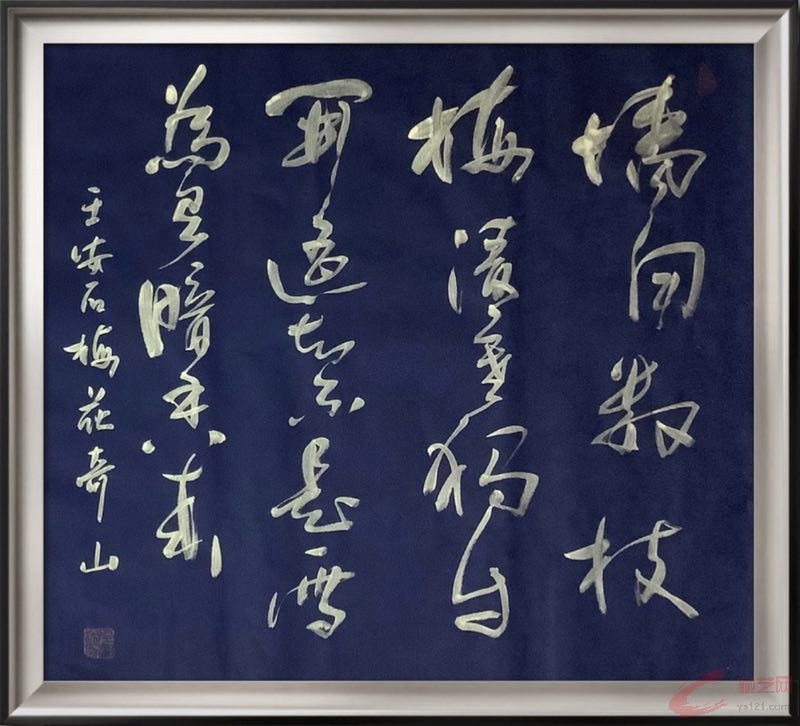 墙角数枝
梅凌寒独自
開遥知不是雪
為有暗香来
王安石梅花奇山
ya121.com